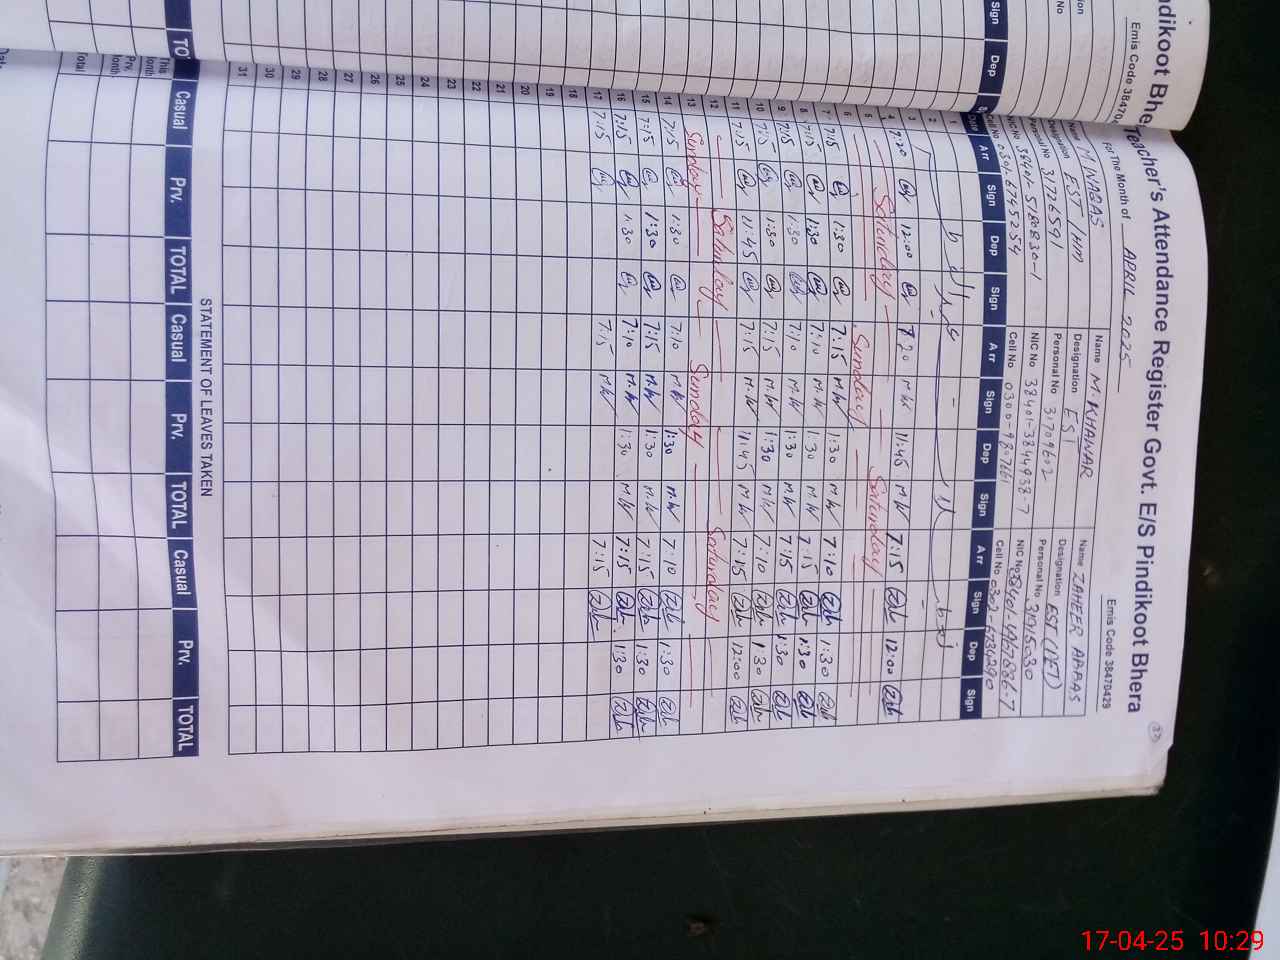 Pindikoot Bhe
Emis Code 38470
Sign Dep
Teacher's Attendance Register Govt. E/S Pindikoot Bhera
37
For The Month of APRIL 2025
Emis Code 38470429
Name M INABAS Name M. KHAWAR Name ZAHEER ABBAS
Designation EST / HM Designation EST Designation EST (PET)
Personal No 31726591 Personal No 31709602 Personal No
NIC No 38401-5180830-1 NIC No 38401-3844938-7 NIC No
Cell No 0301-6745254 Cell No 0300-9807661 Cell No 0302-6734290
Date Arr Sign Dep Sign Arr Sign Dep Sign Arr Sign Dep Sign
1
2
3
4 7:20 12:00 7:20 M.W 11:45 M.W 7:15 12:00
5 Saturday Saturday
6 Sunday
7 7:15 1:30 7:15 M.W 1:30 M.W 7:10 1:30
8 7:15 1:30 7:10 M.W 1:30 M.W 7:15 1:30
9 7:15 1:30 7:10 M.W 1:30 M.W 7:15 1:30
10 7:15 1:30 7:15 M.W 1:30 M.W 7:10 1:30
11 7:15 11:45 7:15 M.W 11:45 M.W 7:15 12:00
12 Saturday Saturday
13 Sunday Sunday
14 7:15 1:30 7:10 M.W 1:30 M.W 7:10 1:30
15 7:15 1:30 7:15 M.W 1:30 M.W 7:15 1:30
16 7:15 1:30 7:10 M.W 1:30 M.W 7:15 1:30
17 7:15 7:15 M.W 7:15
18
19
20
21
22
23
24
25
26
27
28
29
30
31
STATEMENT OF LEAVES TAKEN
Casual Prv. TOTAL Casual Prv. TOTAL Casual Prv. TOTAL
This Month
Prv. Month
Total
17-04-25 10:29